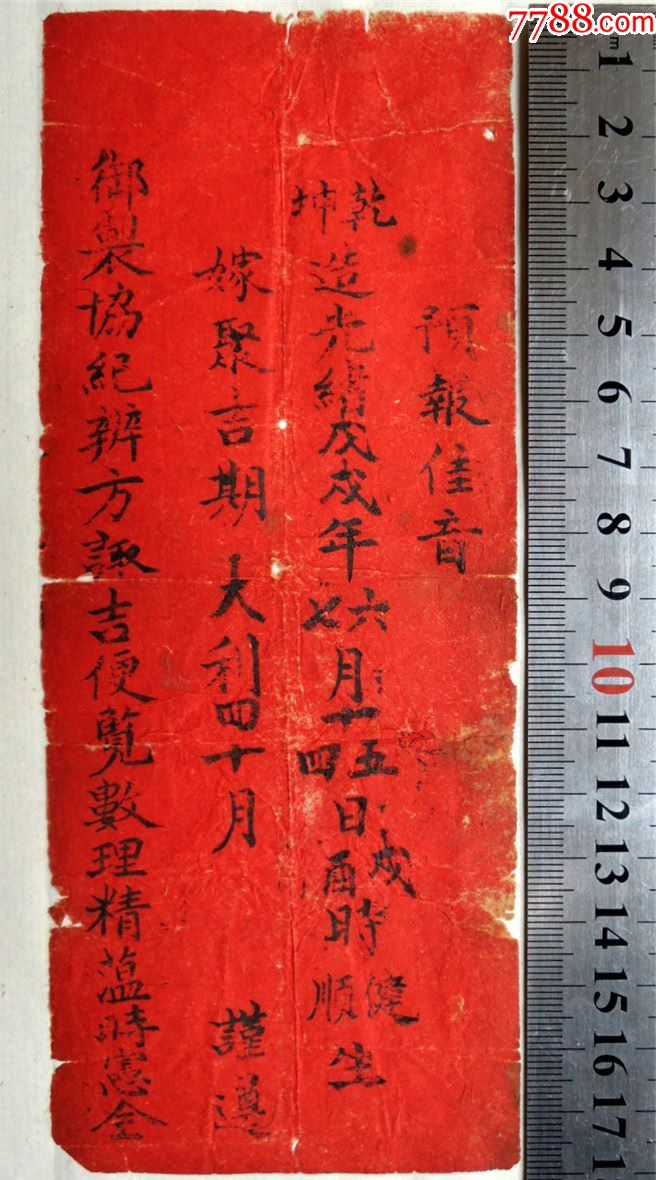 7788.com
預報佳音
乾坤造光緒戊戌年六七月十五四日戌酉時健順生
嫁聚吉期大利四十月 謹遵
御製協紀辦方諏吉便覧數理精蕰時憲全
cm 1 2 3 4 5 6 7 8 9 10 11 12 13 14 15 16 17 1